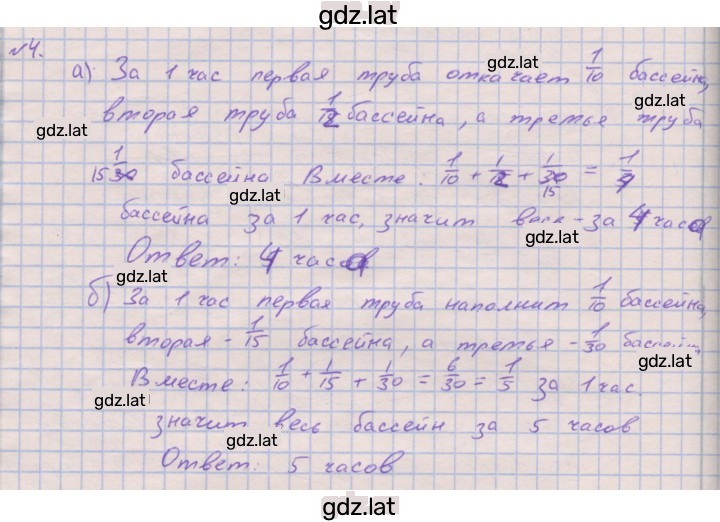 gdz.lat
№4.
а) За 1 час первая труба откачает 1/10 бассейна,
gdz.lat
вторая труба 1/12 бассейна, а третье труба
gdz.lat
gdz.lat
1/15 бассейна Вместе: 1/10 + 1/12 + 1/15 = 1/4
gdz.lat
gdz.lat
бассейна за 1 час, значит весь - за 4 часа
Ответ: 4 часа
gdz.lat
gdz.lat
б) За 1 час первая труба наполнит 1/10 бассейна,
вторая - 1/15 бассейна, а третья - 1/30 бассейна
gdz.lat
Вместе: 1/10 + 1/15 + 1/30 = 6/30 = 1/5 за 1 час.
gdz.lat
gdz.lat
значит весь бассейн за 5 часов
gdz.lat
Ответ: 5 часов
gdz.lat